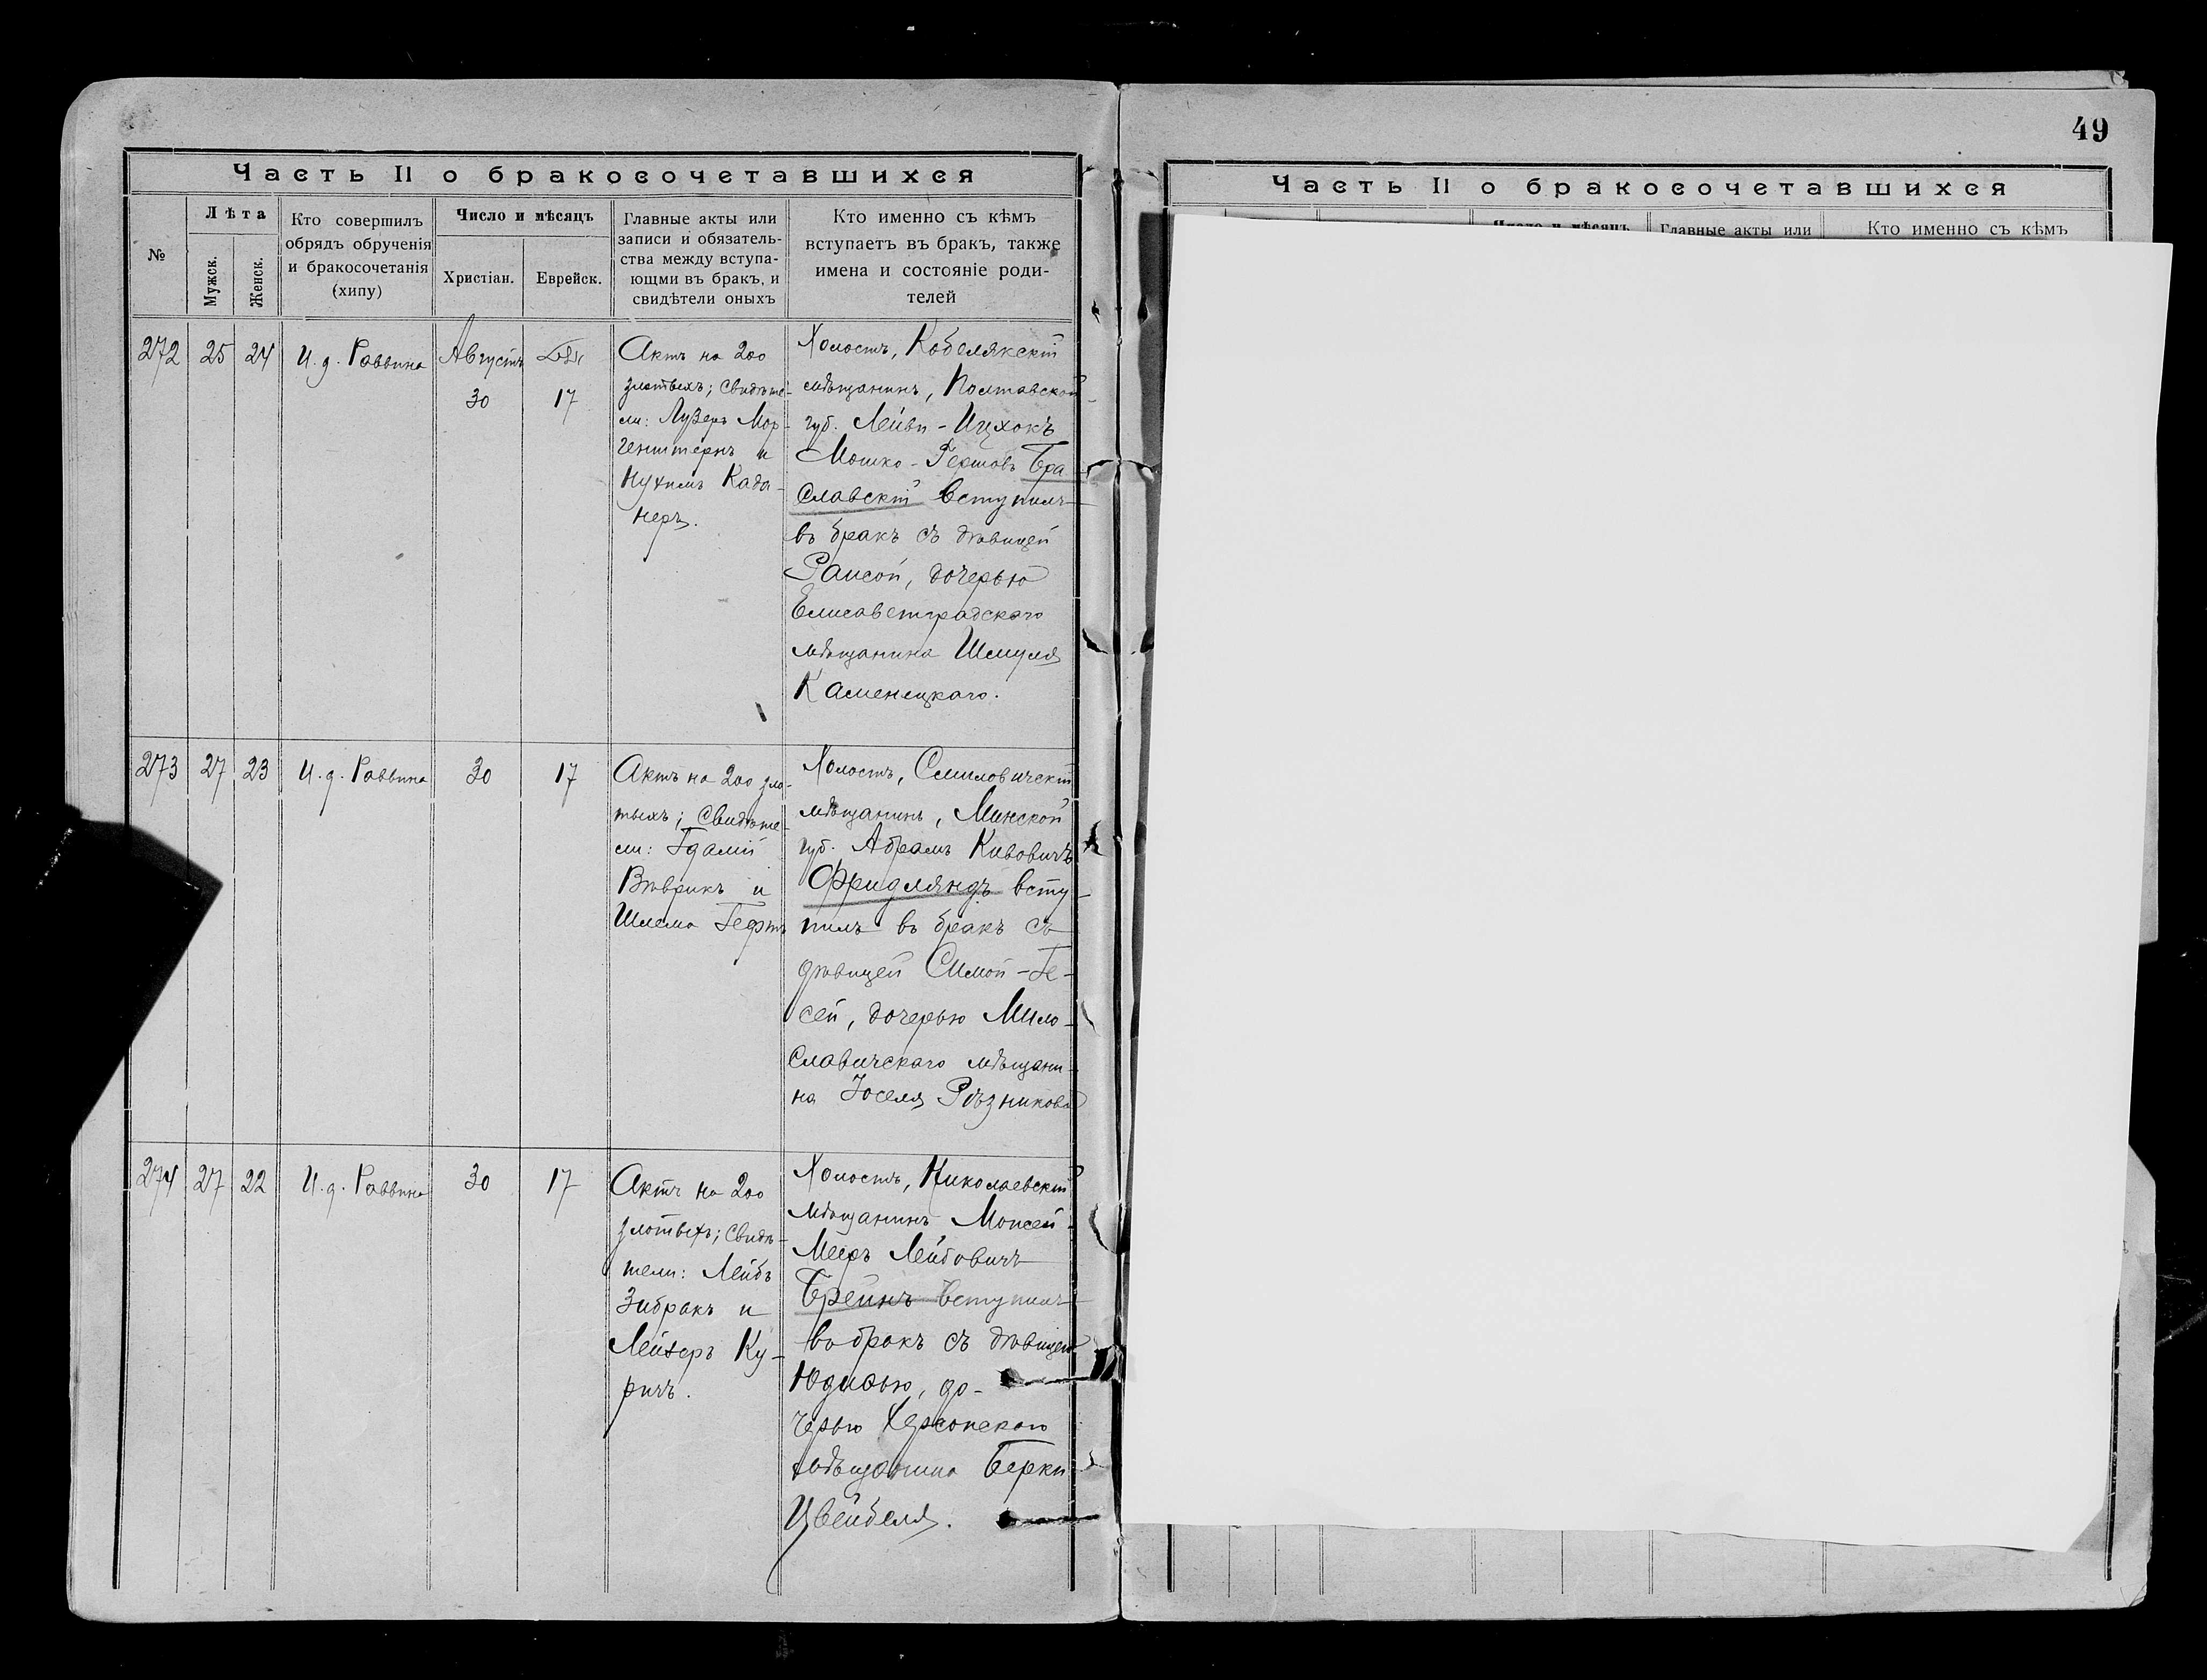 49
Часть II о бракосочетавшихся
№
Лѣта
Мужск.
Женск.
Кто совершилъ
обрядъ обрученія
и бракосочетанія
(хипу)
Число и мѣсяцъ
Христіан.
Еврейск.
Главные акты или
записи и обязатель-
ства между вступа-
ющми въ бракъ, и
свидѣтели оныхъ
Кто именно съ кѣмъ
вступаетъ въ бракъ, также
имена и состояніе роди-
телей
272
25
24
И. д. Раввина
Августъ
30
17
Актъ на 200
злотыхъ; Свидѣте-
ли: Лузеръ Мор-
генштернъ и
Нухимъ Када-
неръ.
Холостъ, Кобелякскій
мѣщанинъ, Полтавской
губ. Лейви-Ицхокъ
Мошко-Гершовъ Бра-
славскій вступилъ
въ бракъ съ дѣвицей
Раисой, дочерью
Елисаветградскаго
мѣщанина Шмуля
Каменецкаго.
273
27
23
И. д. Раввина
30
17
Актъ на 200 зло-
тыхъ; Свидѣте-
ли: Гдалій
Вѣврикъ и
Шлема Гефтъ
Холостъ, Смиловичскій
мѣщанинъ, Минской
губ. Абрамъ Кивовичъ
Фридляндъ всту-
пилъ въ бракъ съ
дѣвицей Симой-Ге-
сей, дочерью Мило-
славичскаго мѣщани-
на Іоселя Рѣзникова
274
27
22
И. д. Раввина
30
17
Актъ на 200
злотыхъ; Свидѣ-
тели: Лейбъ
Зибракъ и
Лейзеръ Ку-
ричъ.
Холостъ, Николаевскій
мѣщанинъ Моисей-
Мееръ Лейбовичъ
Брейнъ вступилъ
въ бракъ съ дѣвицею
Юдиѳью, до-
черью Херсонскаго
мѣщанина Берки
Цвейбеля.
Часть II о бракосочетавшихся
Число и мѣсяцъ
Главные акты или
Кто именно съ кѣмъ